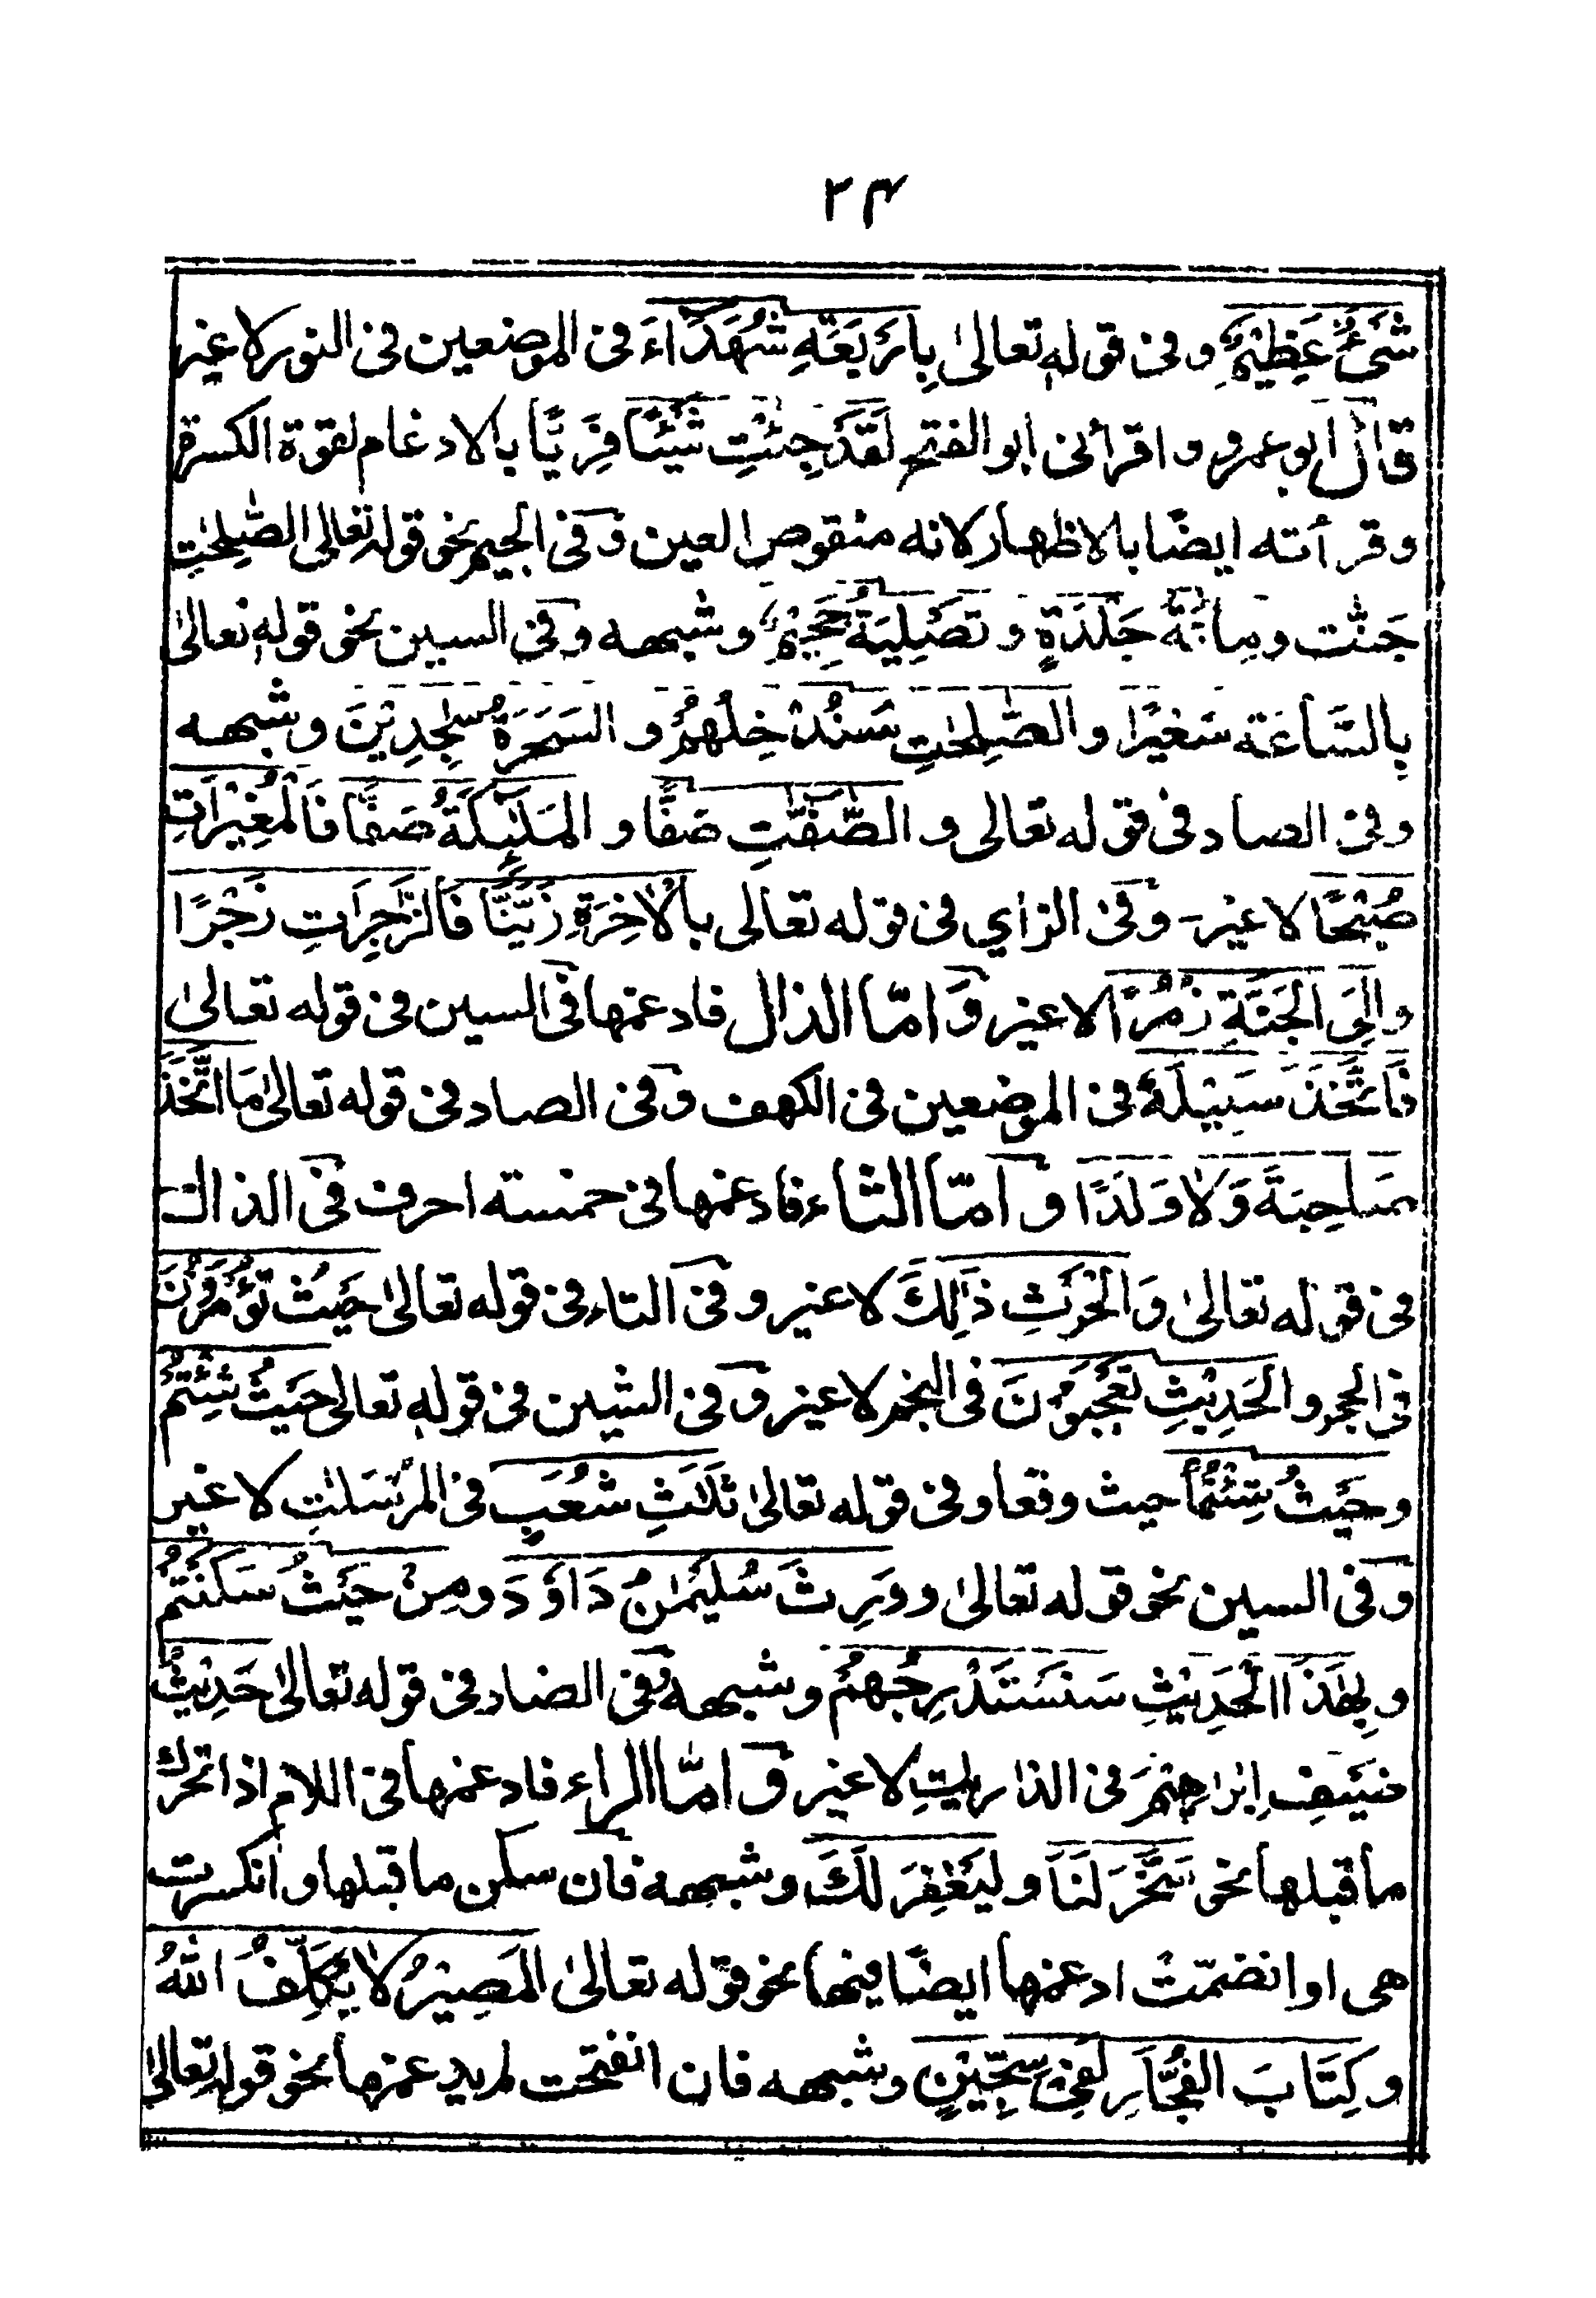 ۲۴
شَىْءٌ عَظِيْمٌ وفى قوله تعالىٰ بِاَرْبَعَةِ شُهَدَاءَ فى الموضعين فى النور لا غير
قال ابو عمرو و اقرأنى ابو الفتح لَقَدْ جِئْتِ شَيْئًا فَرِيًّا بالادغام لقوة الكسرة
وقرأته ايضًا بالاظهار لانه منقوص العين وفى الجيم نحو قوله تعالى الصّٰلِحٰتِ
جَنّٰت و مِائَةَ جَلْدَةٍ و تَصْلِيَةُ جَحِيْمٍ وشبهه وفى السين نحو قوله تعالىٰ
بِالسَّاعَة سَعِيْرًا و الصّٰلِحٰتِ سَنُدْخِلُهُمْ و السَحَرَةُ سٰجِدِيْنَ وشبهه
وفى الصاد فى قوله تعالى و الصّٰفّٰتِ صَفًّا و المَلٰٓئِكَةُ صَفًّا فَالْمُغِيْرَاتِ
صُبْحًا لا غير- وفى الزاي فى قوله تعالى بالْاٰخِرَةِ زَيَّنَّا فَالزّٰجِرَاتِ زَجْرًا
والَى الجَنَّةِ زُمُرًا لا غير وَ امّا الذال فادغمها فى السين فى قوله تعالىٰ
فَاتَّخَذَ سَبِيْلَهٗ فى الموضعين فى الكهف وفى الصاد فى قوله تعالىٰ مَا اتَّخَذَ
صَاحِبَةً وَّلَا وَلَدًا و امّا الثاء فادغمها فى خمسته احرف فى الذال
فى قوله تعالىٰ وَالْحَرْثِ ذَٰلِكَ لا غير و فى التاء فى قوله تعالىٰ حَيْثُ تُؤْمَرُوْنَ
فى الحجر و الحَدِيْثِ تَعْجَبُوْنَ فى النجم لا غير و فى الشين فى قوله تعالى حَيْثُ شِئْتُمْ
و حَيْثُ شِئْتُمَا حيث وقعا و فى قوله تعالىٰ ثَلٰثِ شُعَبٍ فى المُرْسَلٰتِ لا غير
وفى السين نحو قوله تعالىٰ و وَرِثَ سُلَيْمٰنُ دَاوٗدَ و مِنْ حَيْثُ سَكَنْتُمْ
و بِهٰذَا الْحَدِيْثِ سَنَسْتَدْرِجُهُمْ و شبهه وفى الضاد فى قوله تعالىٰ حَدِيْثُ
ضَيْفِ اِبْرَاهِيْمَ فى الذاريٰتِ لا غير وَ امّا الراء فادغمها فى اللام اذا تحرك
ما قبلها نحو سَخَّرَ لَنَا و لِيَغْفِرَ لَكَ و شبهه فان سكن ما قبلها و انكسرت
هى او انضمّت ادغمها ايضًا فيها نحو قوله تعالىٰ المَصِيْرُ لَا يُكَلِّفُ اللّٰهُ
و كِتَابَ الفُجَّارِ لَفِى سِجِّيْنٍ و شبهه فان انفتحت لم يدغمها نحو قوله تعالىٰ